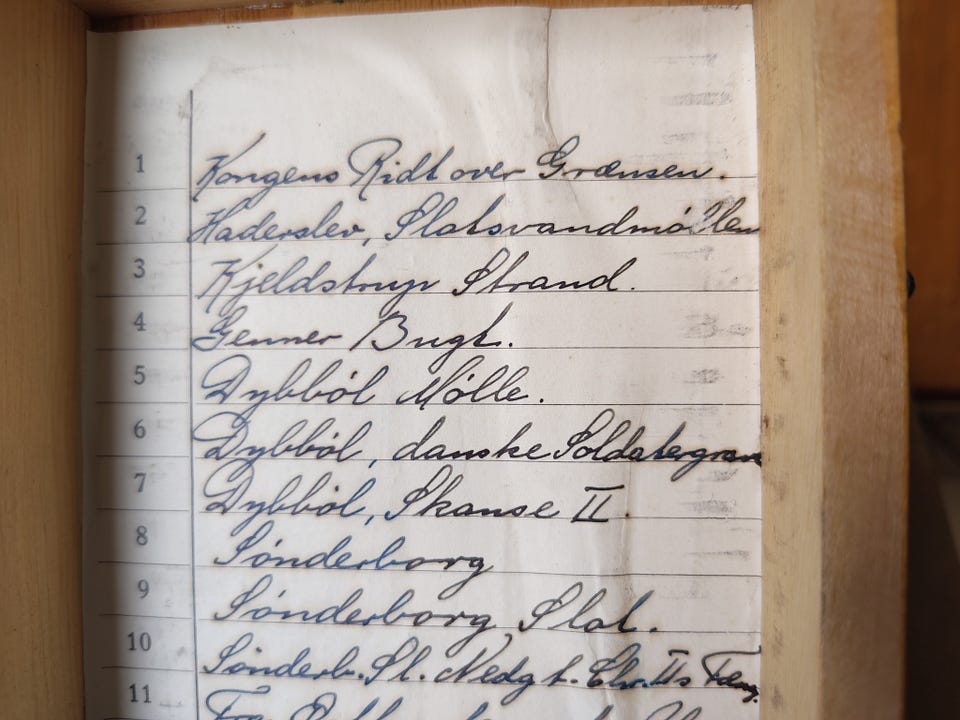 1 Kongens Ridt over Grænsen.
2 Haderslev, Slotsvandmøllen
3 Kjeldstrup Strand.
4 Genner Bugt.
5 Dybböl Mølle.
6 Dybböl, danske Soldatergrave
7 Dybböl, Skanse II.
8 Sønderborg
9 Sønderborg Slot.
10 Sønderb. Sl. Nedg t. Chr. IIs Fæng.
11 Fra